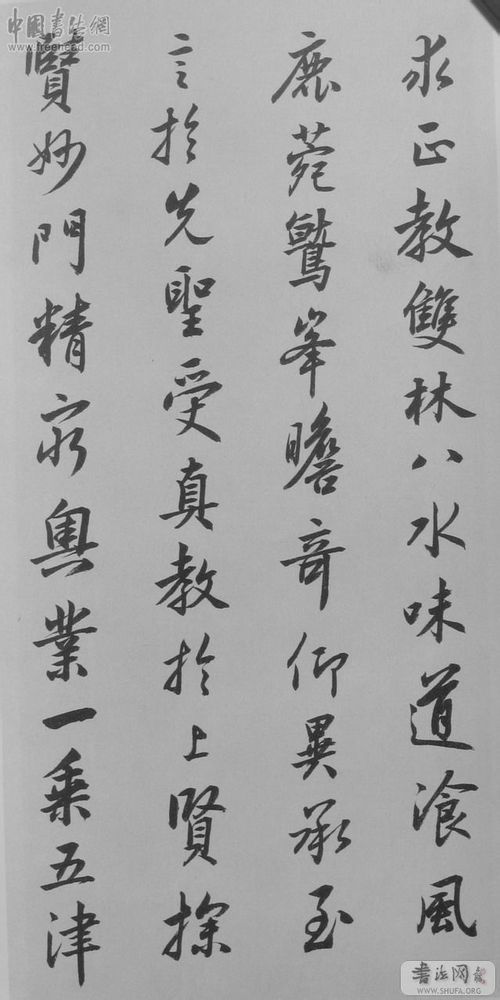 求正教雙林八水味道飡風
鹿菀鷲峯瞻奇仰異承至
言於先聖受真教於上賢探
賾妙門精窮奧業一乘五津
中國書法網
www.freehead.com
書法网
WWW.SHUFA.ORG